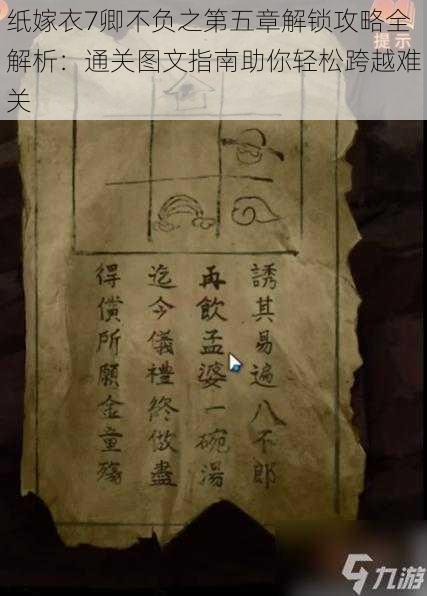 纸嫁衣7卿不负之第五章解锁攻略全
解析：通关图文指南助你轻松跨越难
关
提示
誘其易遍八不郎
再飲孟婆一碗湯
迄今儀禮終做盡
得償所願金童殤
九游